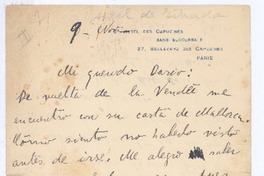 9 Nov HOTEL DES CAPUCINES
SANS SUCCURSALE
37, BOULEVARD DES CAPUCINES
PARIS
Mi querido Darío:
De vuelta de la Vendée me
encuentro con su carta de Mallorca.
Cómo siento no haberlo visto
antes de irse. Me alegro saber